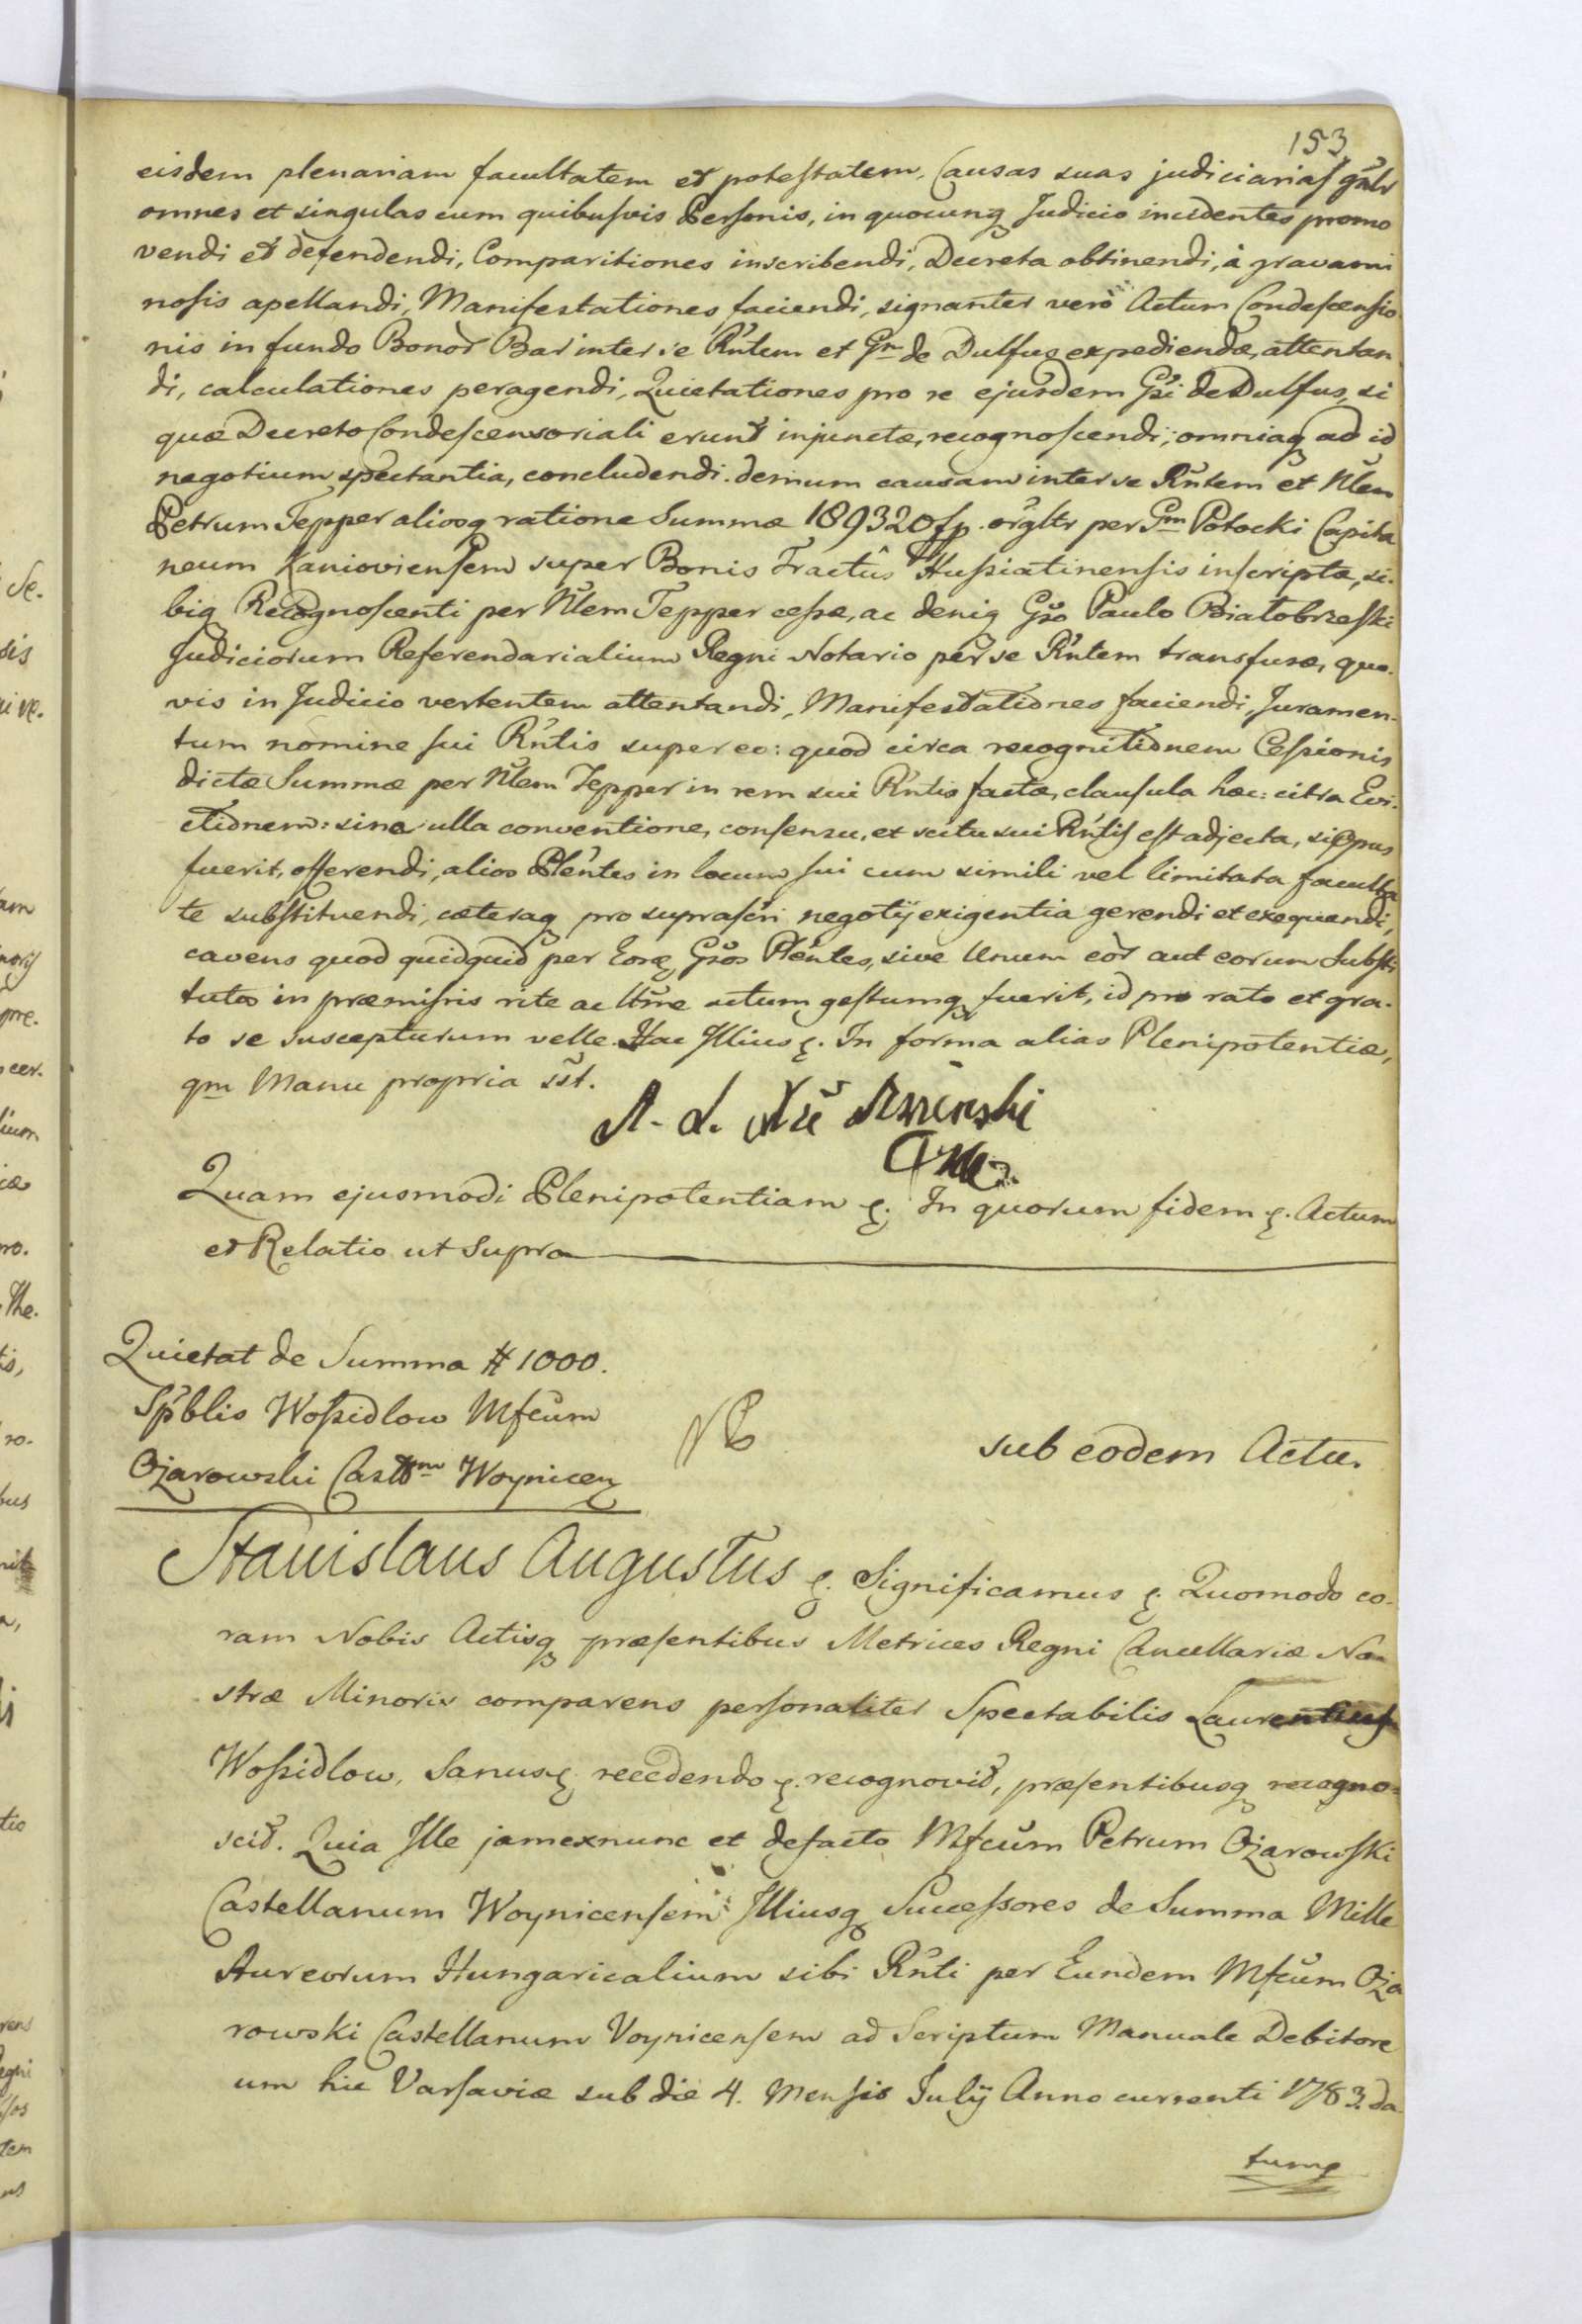 153
eisdem plenariam facultatem et potestatem, Causas suas judiciarias gnlr
omnes et singulas cum quibusvis Personis, in quocunq Judicio incidentes promo
vendi et defendendi, Comparitiones inscribendi, Decreta obtinendi, à gravami
nosis apellandi, Manifestationes faciendi, signanter vero Actum Condescensio
nis in fundo Bonor Bar inter se Rntem et Gm de Dulfus expediendæ, attentan
di, calculationes peragendi, Quietationes pro re ejusdem Gsi de Dulfus, si
quæ Decreto Condescensoriali erunt injunctæ, recognoscendi, omniaq ad id
negotium spectantia, concludendi. demum causam inter se Rntem et Nlem
Petrum Tepper aliosq ratione Summæ 189320 fp. orgltr per Gm Potocki Capita
neum Kanioviensem super Bonis Tractûs Husiatinensis inscriptæ, si.
biq Recognoscenti per Nlem Tepper cessæ, ac deniq Gso Paulo Białobrzeski
Judiciorum Referendarialium Regni Notario per se Rntem transfusæ, quo.
vis in Judicio vertentem attentandi, Manifestationes faciendi, Juramen-
tum nomine sui Rntis super eo: quod circa recognitionem Cessionis
dictæ Summæ per Nlem Tepper in rem sui Rntis factæ, clausula hæc: citra Evi.
ctionem: sine ulla conventione, consensu, et scitu sui Rntis est adjecta, si opus
fuerit, offerendi, alios Plentes in locum sui cum simili vel limitata faculta
te substituendi, cæteraq pro suprascri negotij exigentia gerendi et exequendi,
cavens quod quidquid per Eosq Gsos Plentes, sive Unum eor aut eorum Substi
tutos in præmissis rite ac ltme actum gestumq fuerit, id pro rato et gra.
to se suscepturum velle. Hac Illius ę. In forma alias Plenipotentiæ,
qm Manu propria sst.
Quam ejusmodi Plenipotentiam ę. In quorum fidem ę. Actum
et Relatio ut Supra
Quietat de Summa # 1000.
Spblis Wossidlow Mfcum
Ożarowski Castnm Woynicen
sub eodem Actu.
Stanislaus Augustus ę. Significamus ę. Quomodo co-
ram Nobis Actisq præsentibus Metrices Regni Cancellariæ No
stræ Minoris comparens personaliter Spectabilis Laurentius
Wossidlow, Sanus ę. recedendo ę. recognovit, præsentibusq recogno-
scit. Quia Ille jam exnunc et defacto Mfcum Petrum Ożarowski
Castellanum Woynicensem Illiusq Successores de Summa Mille
Aureorum Hungaricalium sibi Rnti per Eundem Mfcum Oża
rowski Castellanum Voynicensem ad Scriptum Manuale Debitore
um hic Varsaviæ sub die 4. Mensis Julij Anno currenti 1783. da
tumq